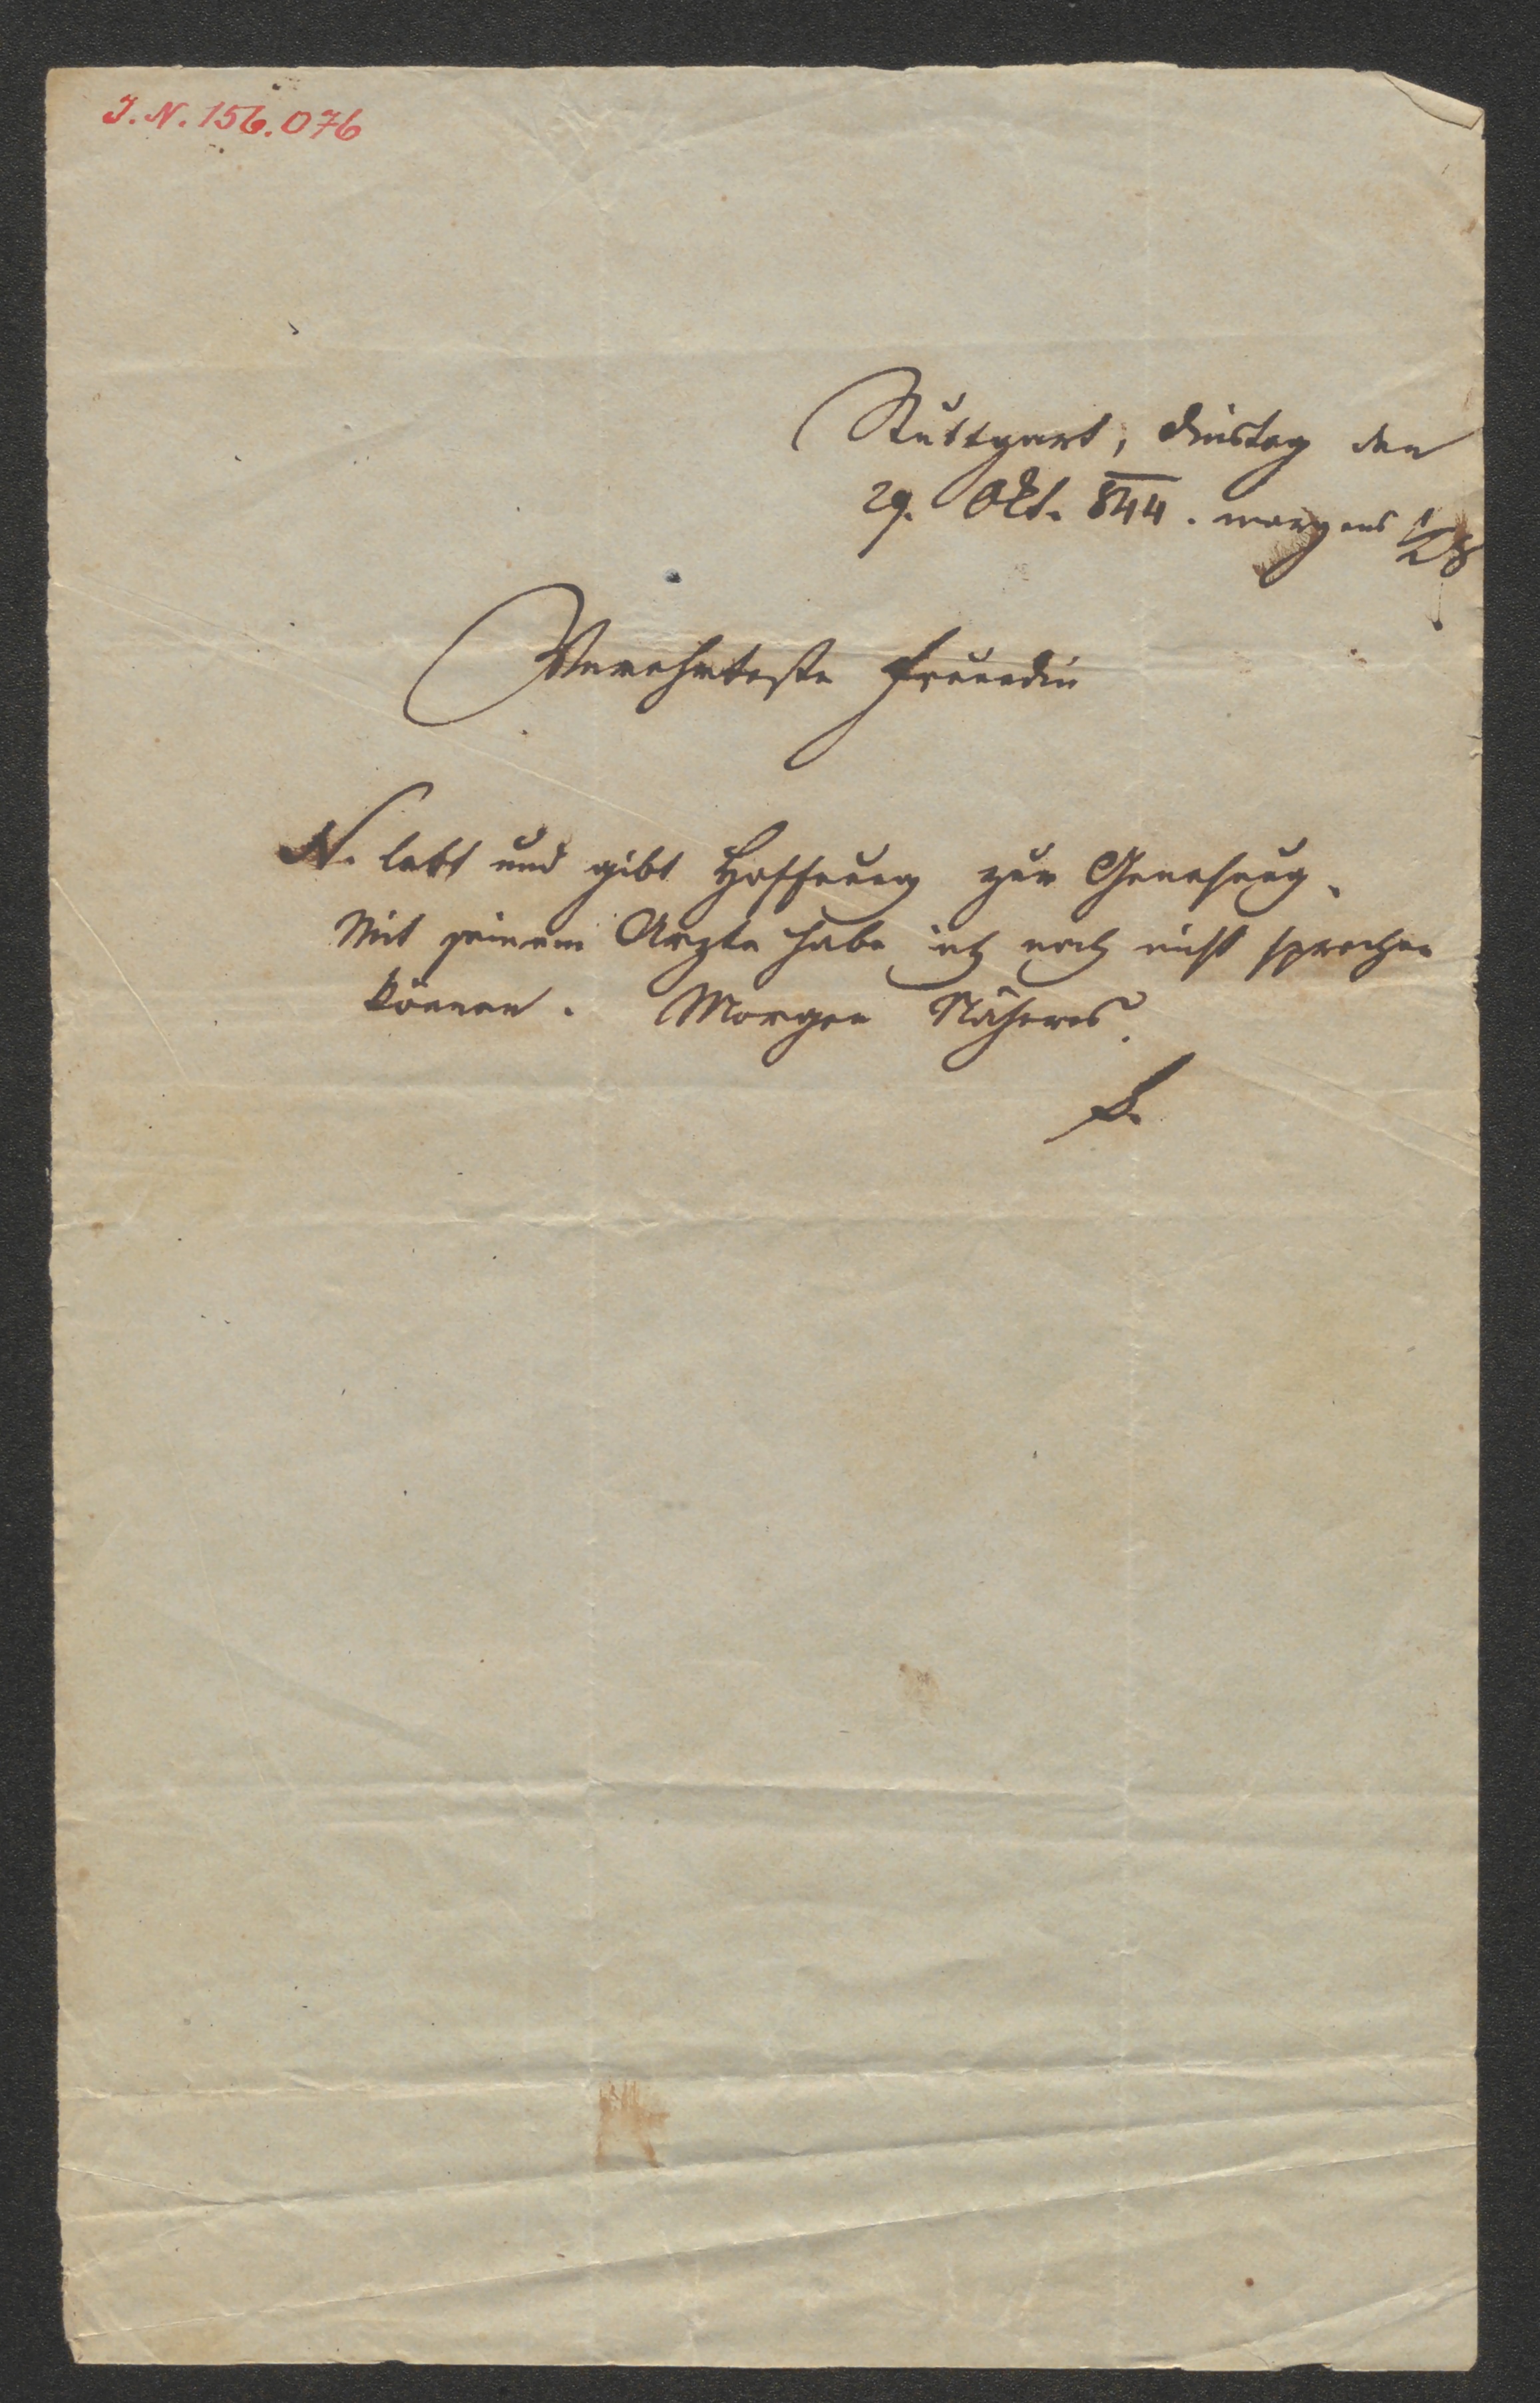 J. N. 156.076
Stuttgart, Dinstag den
29. Okt. 844. morgens 1/2 8
Verehrteste Freundin
N. lebt und gibt Hoffnung zur Genesung.
Mit seinem Arzte habe ich noch nicht sprechen
können. Morgen Näheres.